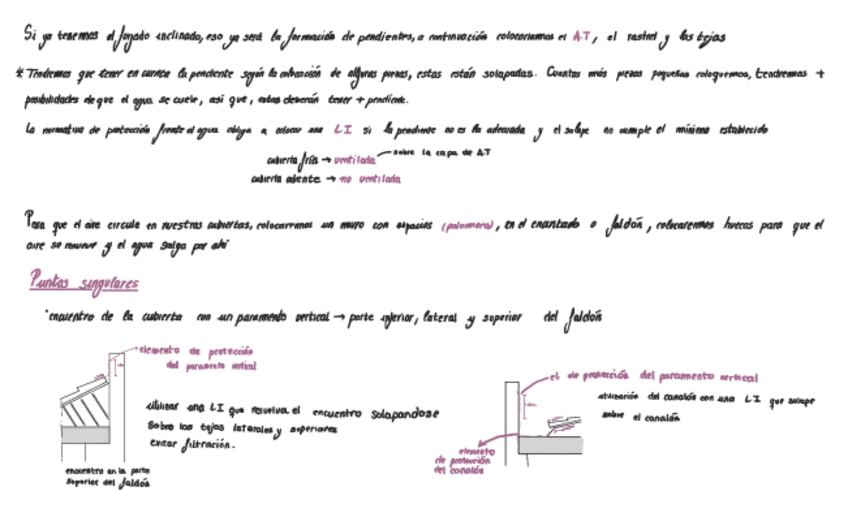 Si ya tenemos el forjado inclinado, eso ya será la formación de pendientes, a continuación colocaríamos el A.T, el rastrel y las tejas
* Tendremos que tener en cuenta la pendiente según la colocación de algunas piezas, estas están solapadas. Cuantas más piezas pequeñas coloquemos, tendremos +
posibilidades de que el agua se cuele, asi que, estas deberán tener + pendiente.
La normativa de protección frente al agua obliga a colocar una LI si la pendiente no es la adecuada y el solape no cumple el mínimo establecido
cubierta fría → ventilada sobre la capa de A.T
cubierta caliente → no ventilada
Para que el aire circule en nuestras cubiertas, colocaremos un muro con espacios (palomero), en el encantado o faldón, colocaremos huecos para que el
aire se renueve y el agua salga por ahí
Puntos singulares
· encuentro de la cubierta con un paramento vertical → parte inferior, lateral y superior del faldón
elemento de protección
del paramento vertical
utilizar una LI que resuelva el encuentro solapandose
sobre las tejas laterales y superiores
evitar filtración.
encuentro en la parte
superior del faldón
el. de protección del paramento vertical
utilización del canalón con una LI que solape
sobre el canalón
elemento
de protección
del canalón